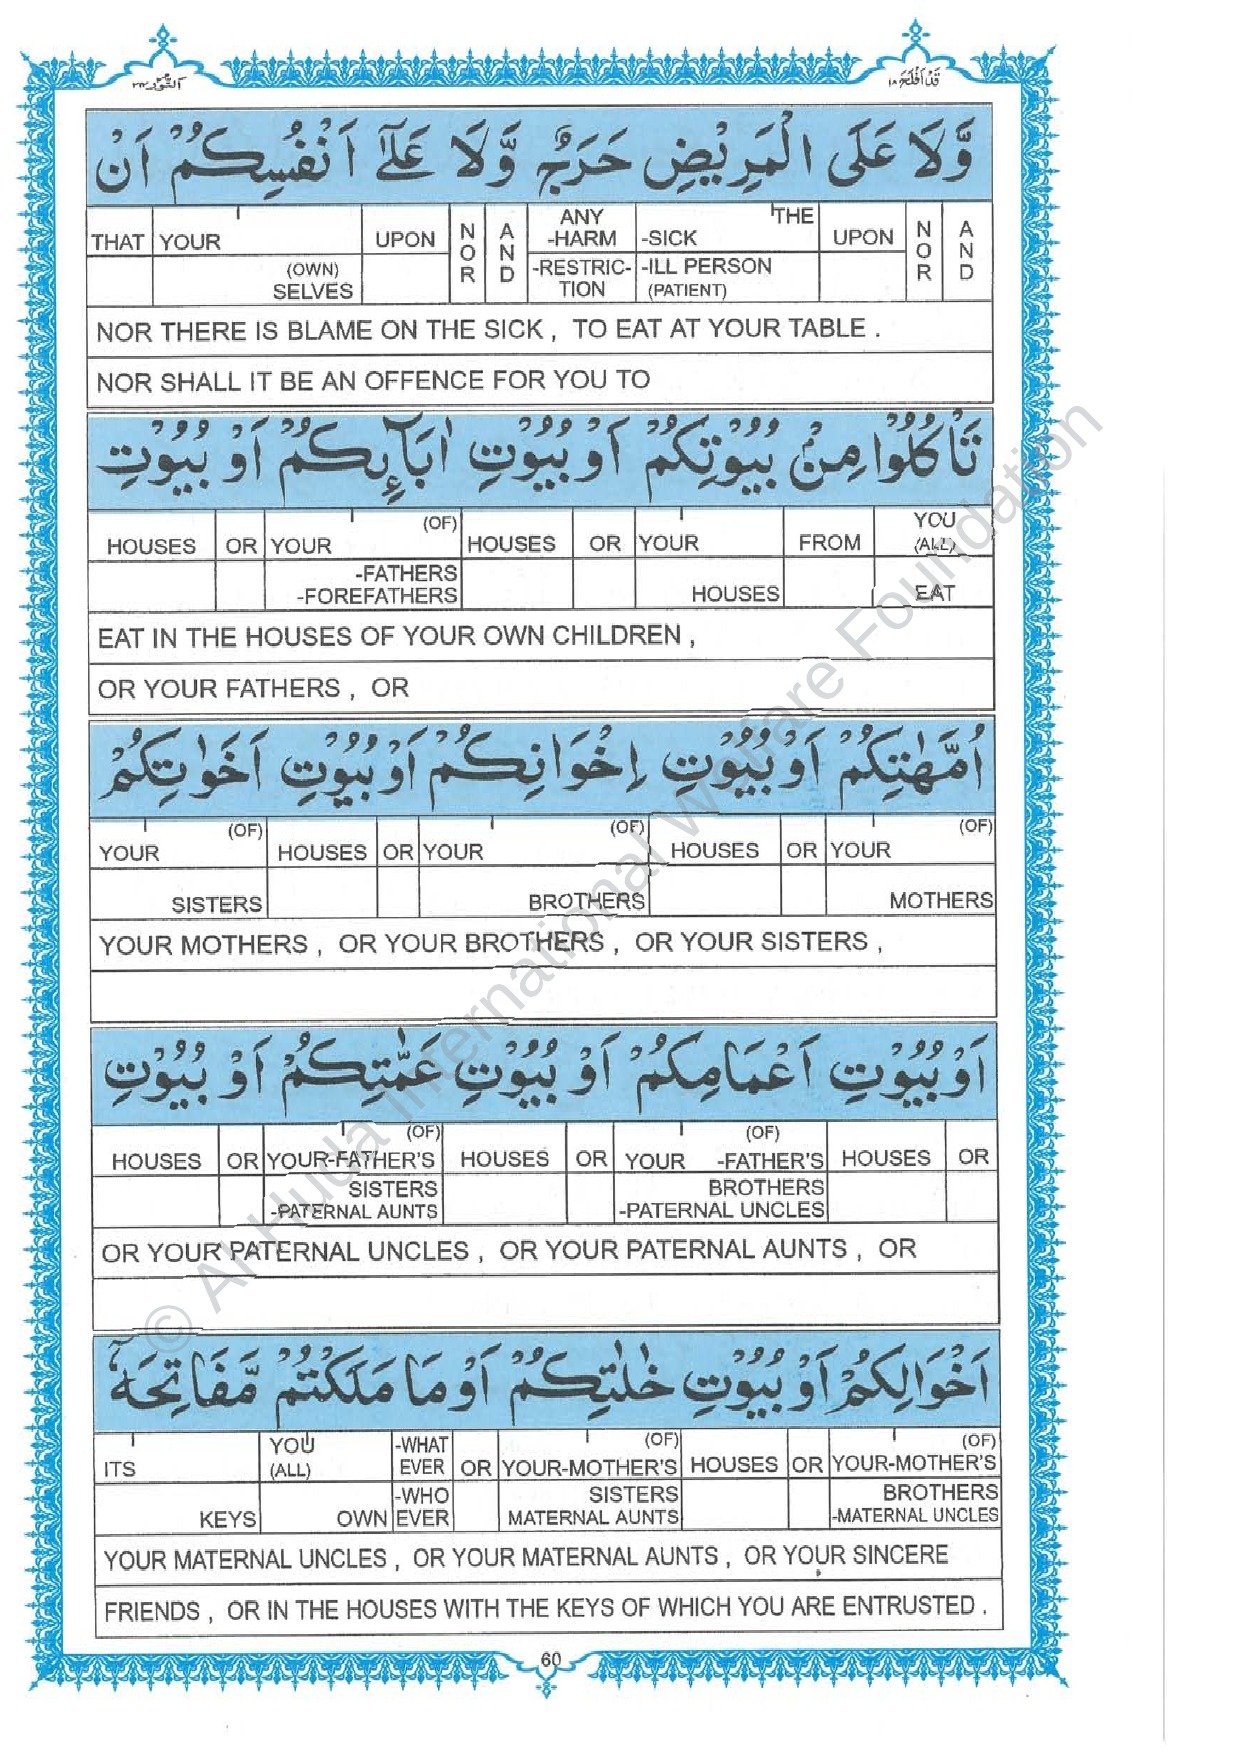 قَدْ اَفْلَحَ ١٨
اَلنُّوْر ٢٤
وَّلَا عَلَى الْمَرِيْضِ حَرَجٌ وَّلَا عَلٰٓى اَنْفُسِكُمْ اَنْ
THAT YOUR UPON NOR AND ANY -HARM -SICK THE UPON NOR AND
(OWN) SELVES -RESTRIC-TION -ILL PERSON (PATIENT)
NOR THERE IS BLAME ON THE SICK , TO EAT AT YOUR TABLE .
NOR SHALL IT BE AN OFFENCE FOR YOU TO
تَاْكُلُوْا مِنْۢ بُيُوْتِكُمْ اَوْ بُيُوْتِ اٰبَآىِٕكُمْ اَوْ بُيُوْتِ
HOUSES OR YOUR (OF) HOUSES OR YOUR FROM YOU (ALL)
-FATHERS -FOREFATHERS HOUSES EAT
EAT IN THE HOUSES OF YOUR OWN CHILDREN ,
OR YOUR FATHERS , OR
اُمَّهٰتِكُمْ اَوْ بُيُوْتِ اِخْوَانِكُمْ اَوْ بُيُوْتِ اَخَوٰتِكُمْ
YOUR (OF) HOUSES OR YOUR (OF) HOUSES OR YOUR (OF)
SISTERS BROTHERS MOTHERS
YOUR MOTHERS , OR YOUR BROTHERS , OR YOUR SISTERS ,
اَوْ بُيُوْتِ اَعْمَامِكُمْ اَوْ بُيُوْتِ عَمّٰتِكُمْ اَوْ بُيُوْتِ
HOUSES OR YOUR-FATHER'S (OF) HOUSES OR YOUR -FATHER'S (OF) HOUSES OR
SISTERS -PATERNAL AUNTS BROTHERS -PATERNAL UNCLES
OR YOUR PATERNAL UNCLES , OR YOUR PATERNAL AUNTS , OR
اَخْوَالِكُمْ اَوْ بُيُوْتِ خٰلٰتِكُمْ اَوْ مَا مَلَكْتُمْ مَّفَاتِحَهٗٓ
ITS YOU (ALL) -WHAT EVER OR YOUR-MOTHER'S (OF) HOUSES OR YOUR-MOTHER'S (OF)
KEYS OWN -WHO EVER SISTERS MATERNAL AUNTS BROTHERS -MATERNAL UNCLES
YOUR MATERNAL UNCLES , OR YOUR MATERNAL AUNTS , OR YOUR SINCERE
FRIENDS , OR IN THE HOUSES WITH THE KEYS OF WHICH YOU ARE ENTRUSTED .
60
© Al Huda International Welfare Foundation